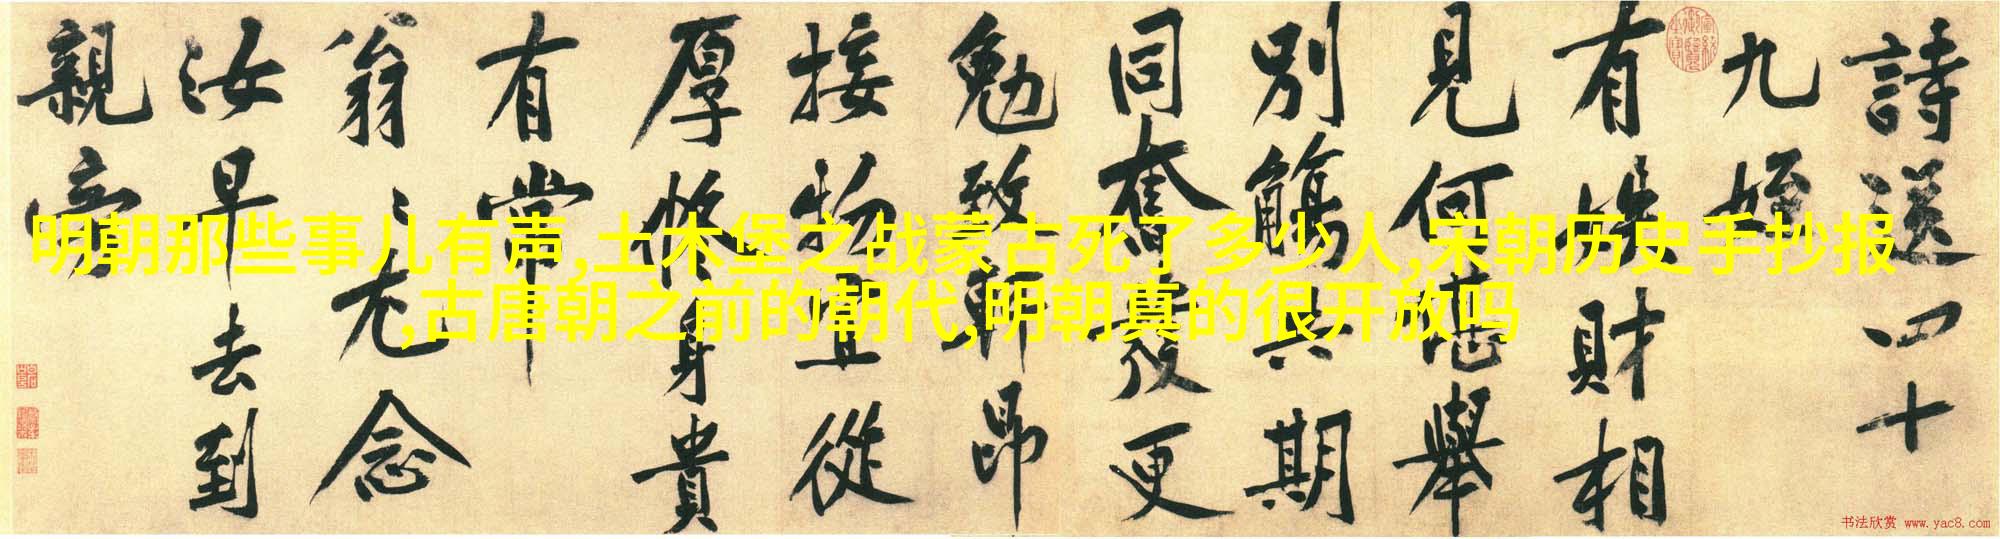 詩送四十
九姪
有財相
見何堪舉
別觴共期
同奮發更
勉致軒昂
接物宜從
厚身貴
有常
翁〻尤念
汝早去到
親旁
明朝那些事儿有声,土木堡之战蒙古死了多少人,宋朝历史手抄报
,古唐朝之前的朝代,明朝真的很开放吗
书法欣赏 www.yac8.com